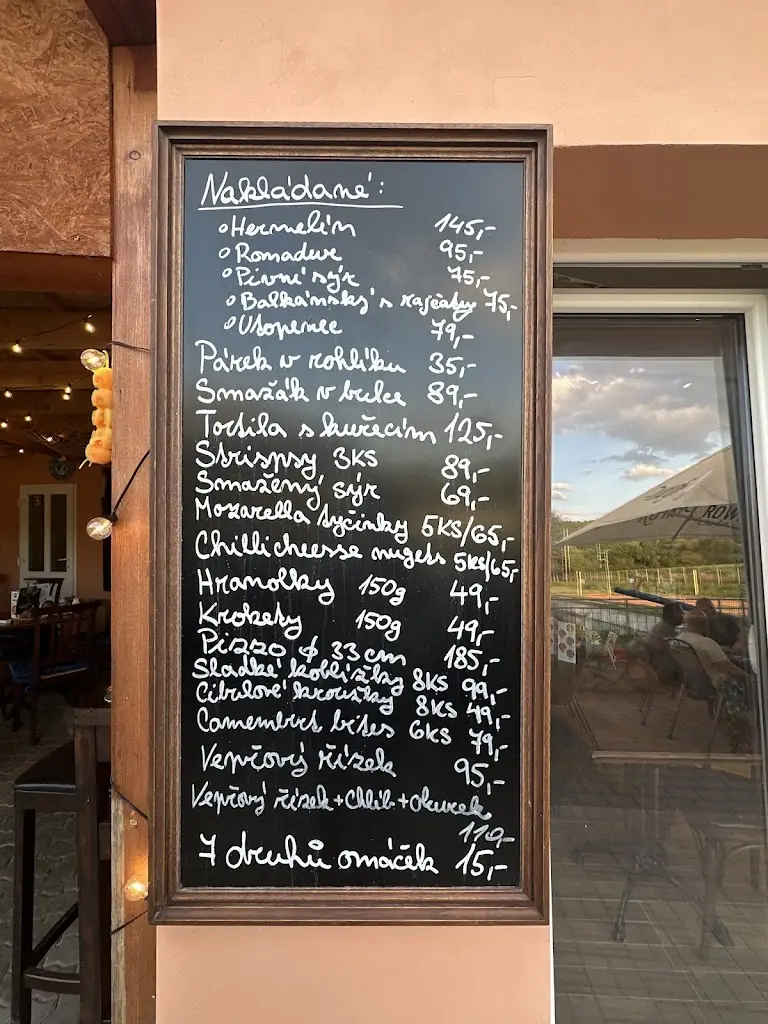 Nakládané:
Hermelín 145,-
Romadur 95,-
Pivní sýr 75,-
Balkánský s rajčaty 75,-
Utopenec 79,-
Párek v rohlíku 35,-
Smažák v bulce 89,-
Tortila s kuřecím 125,-
Stripsy 3KS 89,-
Smažený sýr 69,-
Mozarella tyčinky 5KS/65,-
Chillicheesse nugets 5KS/65,-
Hranolky 150g 49,-
Krokety 150g 49,-
Pizza ϕ 33 cm 185,-
Sladké koblížky 8KS 99,-
Cibulové kroužky 8KS 49,-
Camembert bites 6KS 79,-
Vepřový řízek 95,-
Vepřový řízek + Chléb + okurek
110,-
7 druhů omáček 15,-